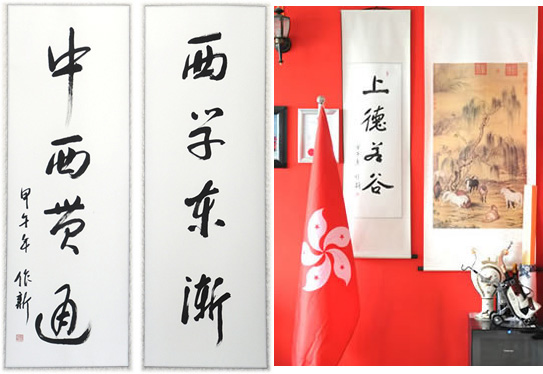 西学东渐
中西贯通
甲午年 作新
上德若谷